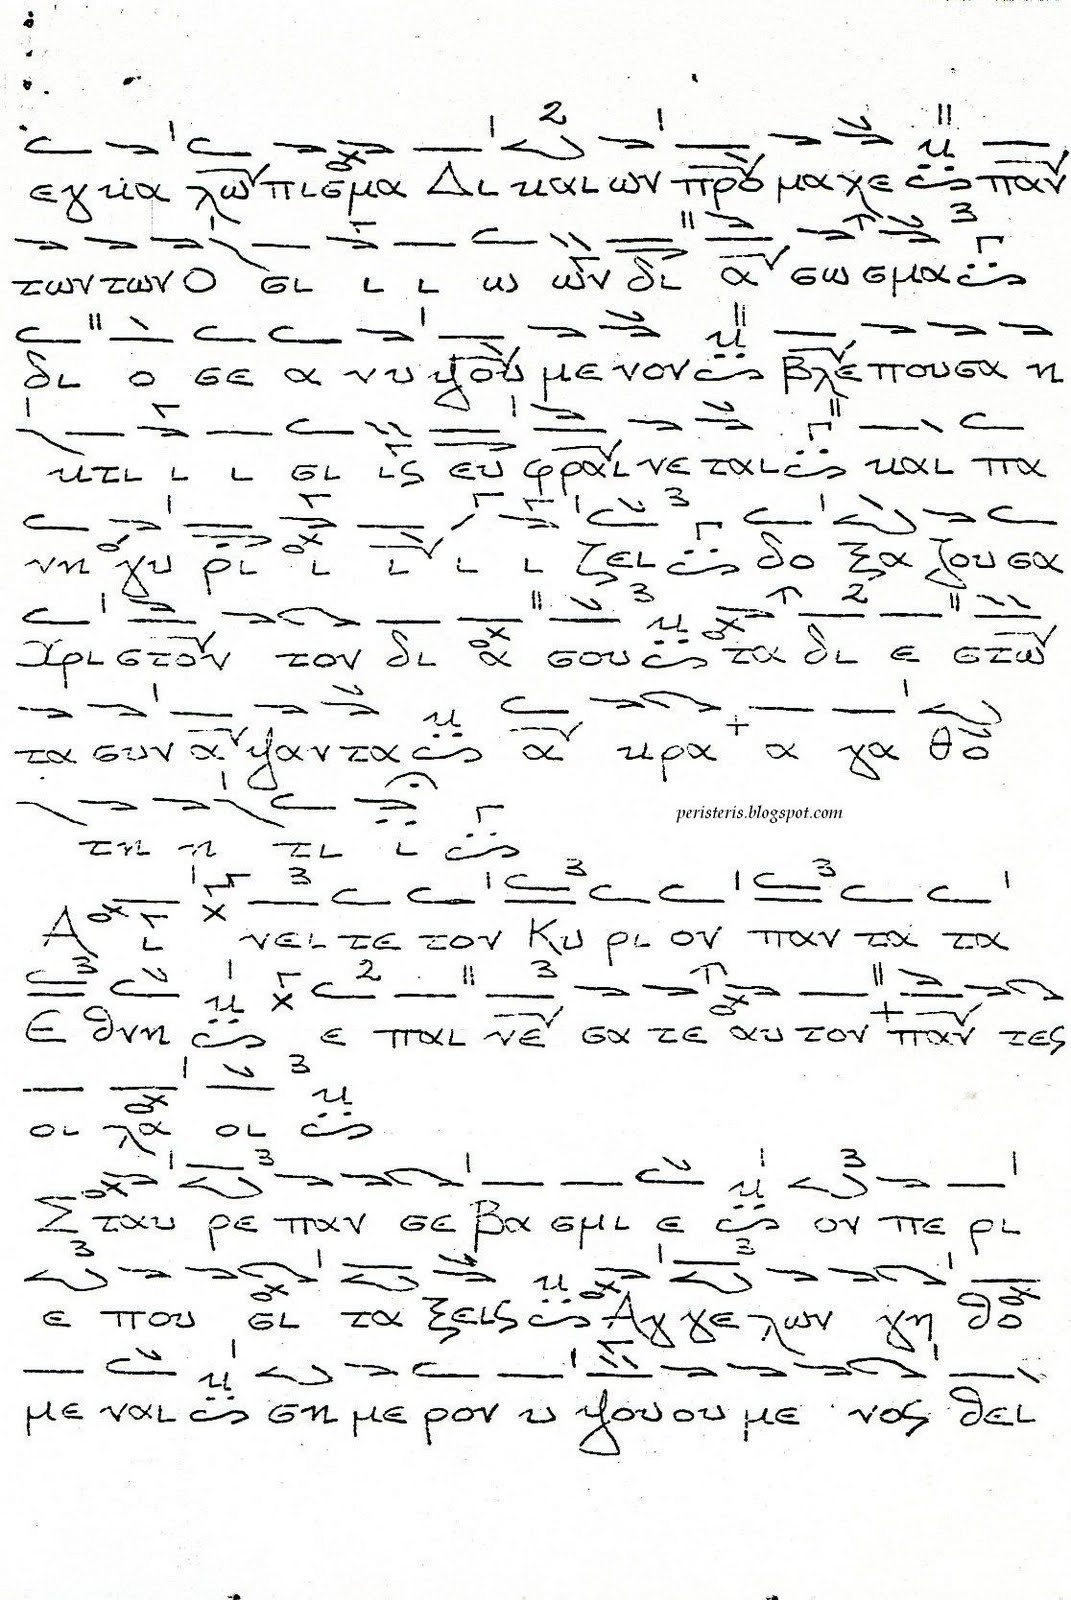 εγκα λώ πισμα Δι και ων πρό μα χε παν
των των Ο σι ι ι ω ών δι ά σω σμα
δι ο σε α νυ ψού με νον βλέ που σα η
κτι ι ι σι ις ευ φραί νε ται και πα
νη γυ ρι ι ι ι ι ζει δο ξα ζου σα
Χρι στόν τον δι α σου τα δι ε στώ
τα συν ά ψαν τα ά κρα α γα θό
τη η τι ι
peristeris.blogspot.com
Α ι νει τε τον Κυ ρι ον παν τα τα
Ε θνη ε παι νέ σα τε αυ τον πάν τες
οι λα οι
Σ ταυ ρε παν σε βα σμι ε ον πε ρι
ε που σι τα ξεις Αγ γε λων γη θό
με ναι ση με ρον υ ψου ου με νος θεί